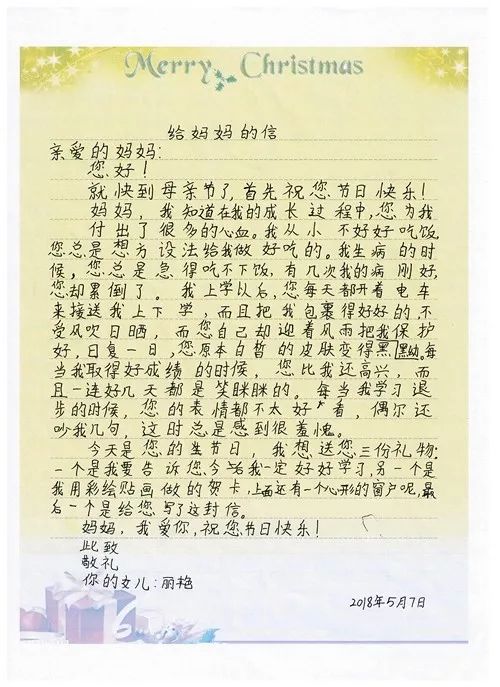 Merry Christmas
给妈妈的信
亲爱的妈妈:
您好!
就快到母亲节了,首先祝您节日快乐!
妈妈,我知道在我的成长过程中,您为我
付出了很多的心血。我从小不好好吃饭,
您总是想方设法给我做好吃的。我生病的时
候,您总是急得吃不下饭,有几次我的病刚好,
您却累倒了。我上学以后,您每天都开着电车
来接送我上下学,而且把我包裹得好好的不
受风吹日晒,而您自己却迎着风雨把我保护
好,日复一日,您原本白皙的皮肤变得黑黝,每
当我取得好成绩的时候,您比我还高兴,而
且一连好几天都是笑眯眯的。每当我学习退
步的时候,您的表情都不太好看,偶尔还
吵我几句,这时总是感到很羞愧。
今天是您的生节日,我想送您三份礼物:
一个是我要告诉您今后我一定好好学习,另一个是
我用彩绘贴画做的贺卡,上面还有一个心形的窗户呢,最
后一个是给您写了这封信。
妈妈,我爱你,祝您节日快乐!
此致
敬礼
你的女儿:丽艳
2018年5月7日